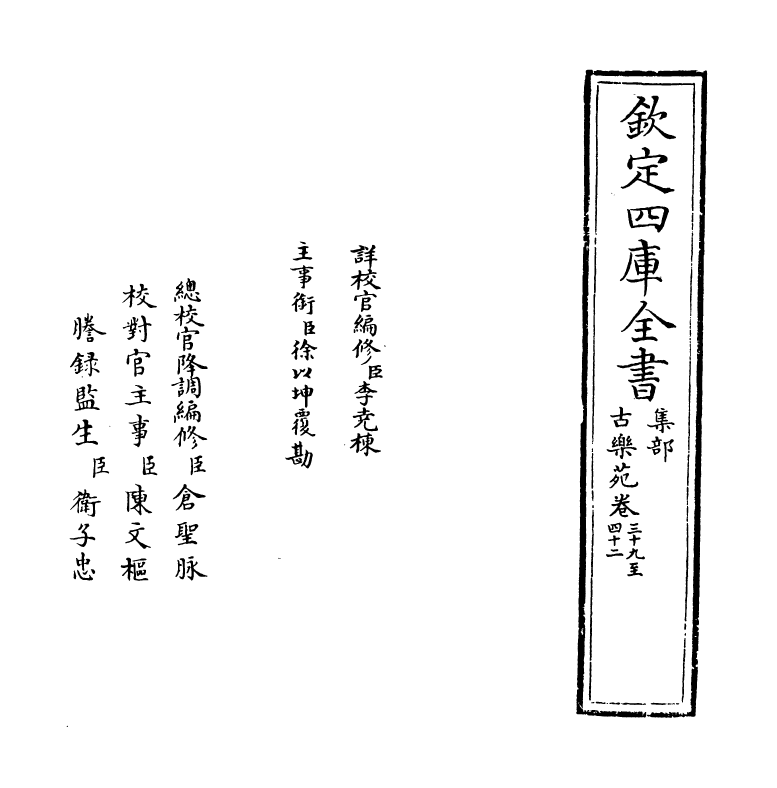 欽定四庫全書
集部
古樂苑卷三十九至四十二
詳校官編修臣李堯棟
主事銜臣徐以坤覆勘
總校官降調編修臣倉聖脉
校對官主事臣陳文樞
謄録監生臣衛子忠